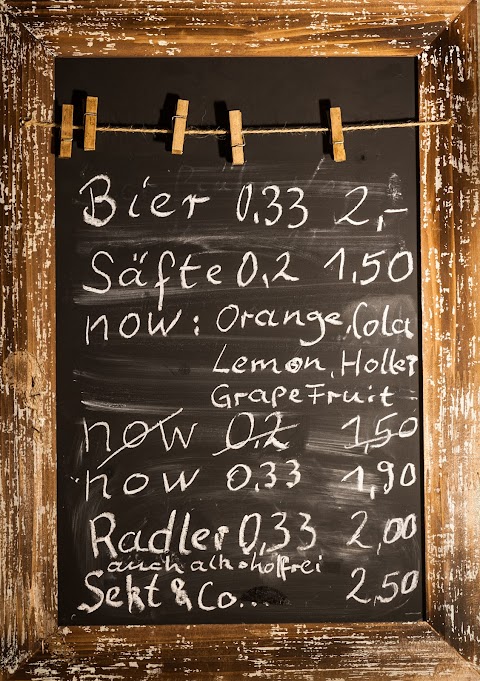 Bier 0,33 2,-
Säfte 0,2 1,50
now: Orange, Cola
Lemon, Holler
GrapeFruit
now 0,2 1,50
now 0,33 1,90
Radler 0,33 2,00
auch alkoholfrei
Sekt & Co... 2,50